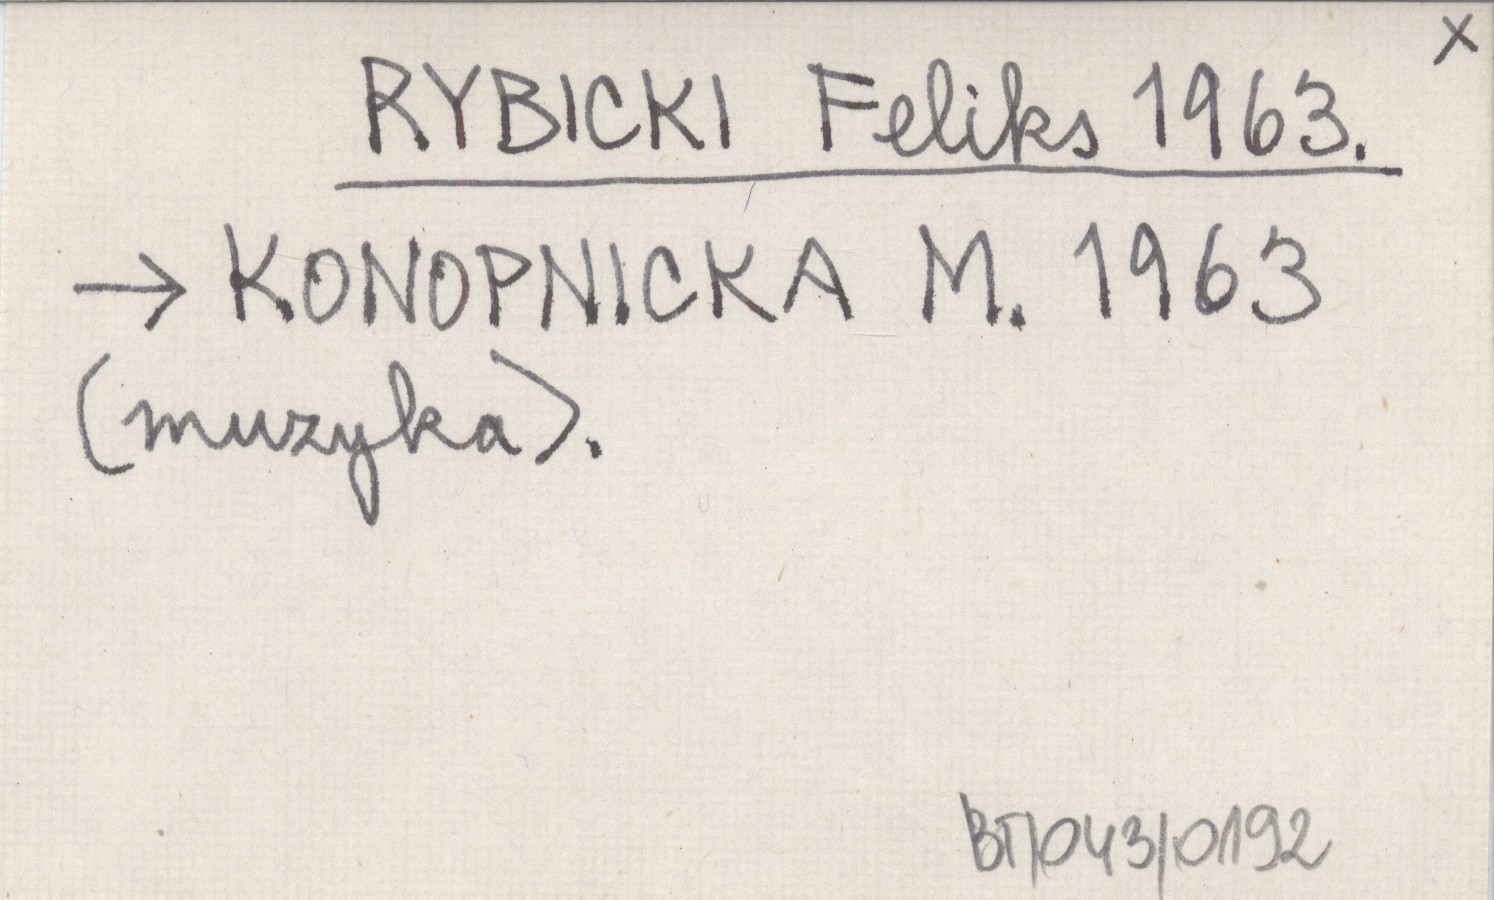 x
RYBICKI Feliks 1963.
→ KONOPNICKA M. 1963
(muzyka).
BT/043/0192